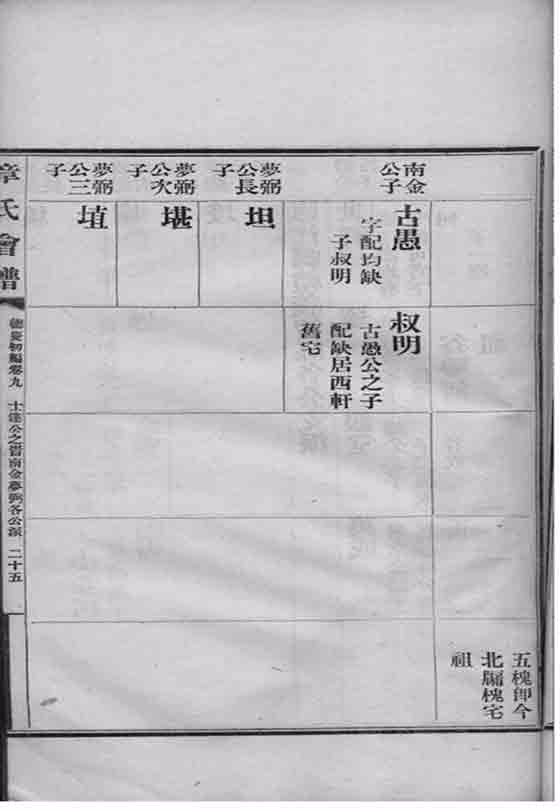 五槐即今
北槐宅
祖
南金
公子
古愚
字配均缺
子叔明
叔明
古愚公之子
配缺居西軒
舊宅
夢弼
公長
子
坦
夢弼
公次
子
堪
夢弼
公三
子
埴
章氏會譜
德慶初編卷九
士達公之晉南金夢弼各公派
二十五